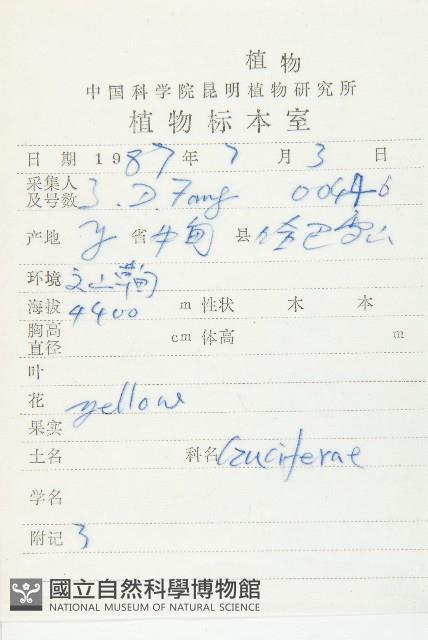 植物
中国科学院昆明植物研究所
植物标本室
日期 1987年 7月 3日
采集人
及号数 J. D. Fang 00446
产地 y 省 中甸 县 哈巴雪山
环境
海拔 4400 m 性状 木 本
胸高
直径 cm 体高 m
叶
花 yellow
果实
土名 科名 Cruciferae
学名
附记 3
國立自然科學博物館
NATIONAL MUSEUM OF NATURAL SCIENCE